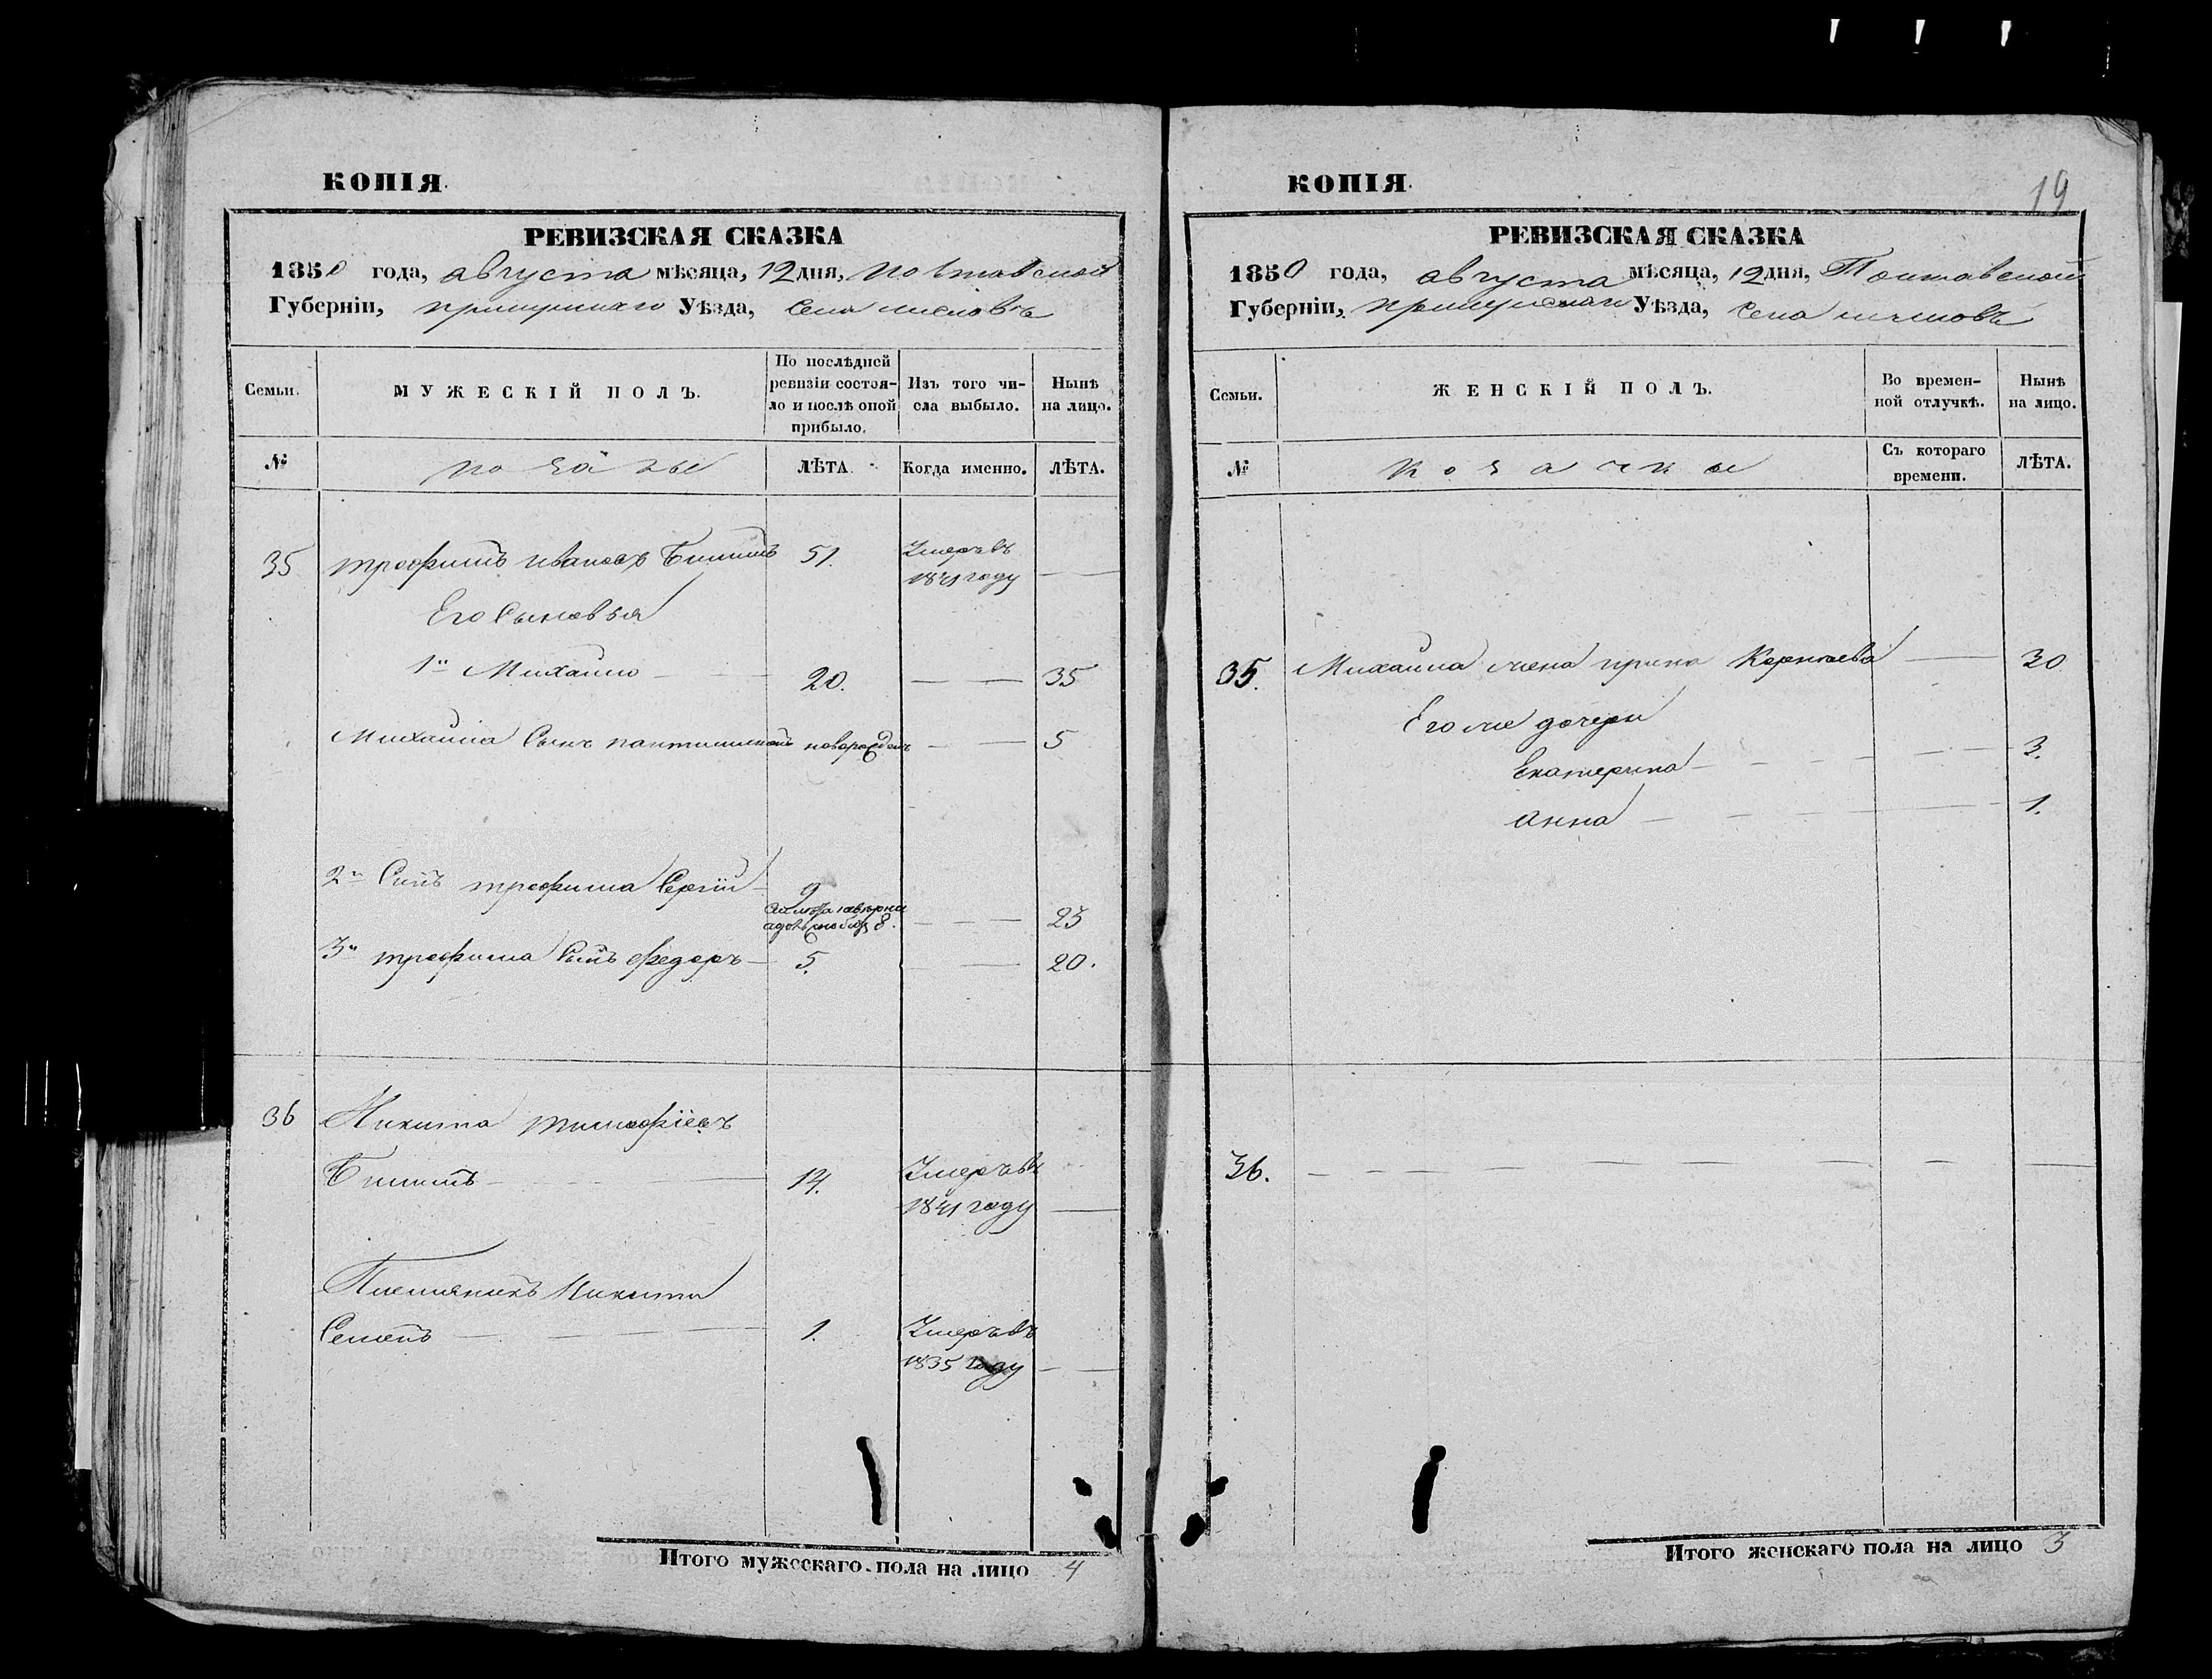 КОПІЯ.
РЕВИЗСКАЯ СКАЗКА
1850 года, августа мѣсяца, 12 дня, Полтавской
Губерніи, прилуцкаго Уѣзда, села
Семьи.
МУЖЕСКІЙ ПОЛЪ.
По послѣдней ревизіи состоя-
ло и послѣ оной прибыло.
Изъ того чи-
сла выбыло.
Нынѣ
на лицо.
№
козаки
ЛѢТА.
Когда именно.
ЛѢТА.
35 трофимъ ивановъ 51. Умеръ въ
1841 году —
Его Сыновья
1й Михайло 20. — 35
Михайла Сынъ пантилимонъ новорожден — 5
2й Сынъ трофима Сергій 9
8. — 23
3й трофима Сынъ федоръ 5. — 20.
36 Никита тимофіевъ
14. Умеръ въ
1841 году —
Племянникъ Никиты
Семенъ 1. Умеръ въ
1835 году —
Итого мужескаго пола на лицо 4
КОПІЯ.
19
РЕВИЗСКАЯ СКАЗКА
1850 года, августа мѣсяца, 12 дня, Полтавской
Губерніи, прилуцкаго Уѣзда, села
Семьи.
ЖЕНСКІЙ ПОЛЪ.
Во времен-
ной отлучкѣ.
Нынѣ
на лицо.
№
козачки
Съ котораго
времени.
ЛѢТА.
35. Михайла жена ирина — 30
Его же дочери
Екатерина — 3.
анна — 1.
36. —
Итого женскаго пола на лицо 3